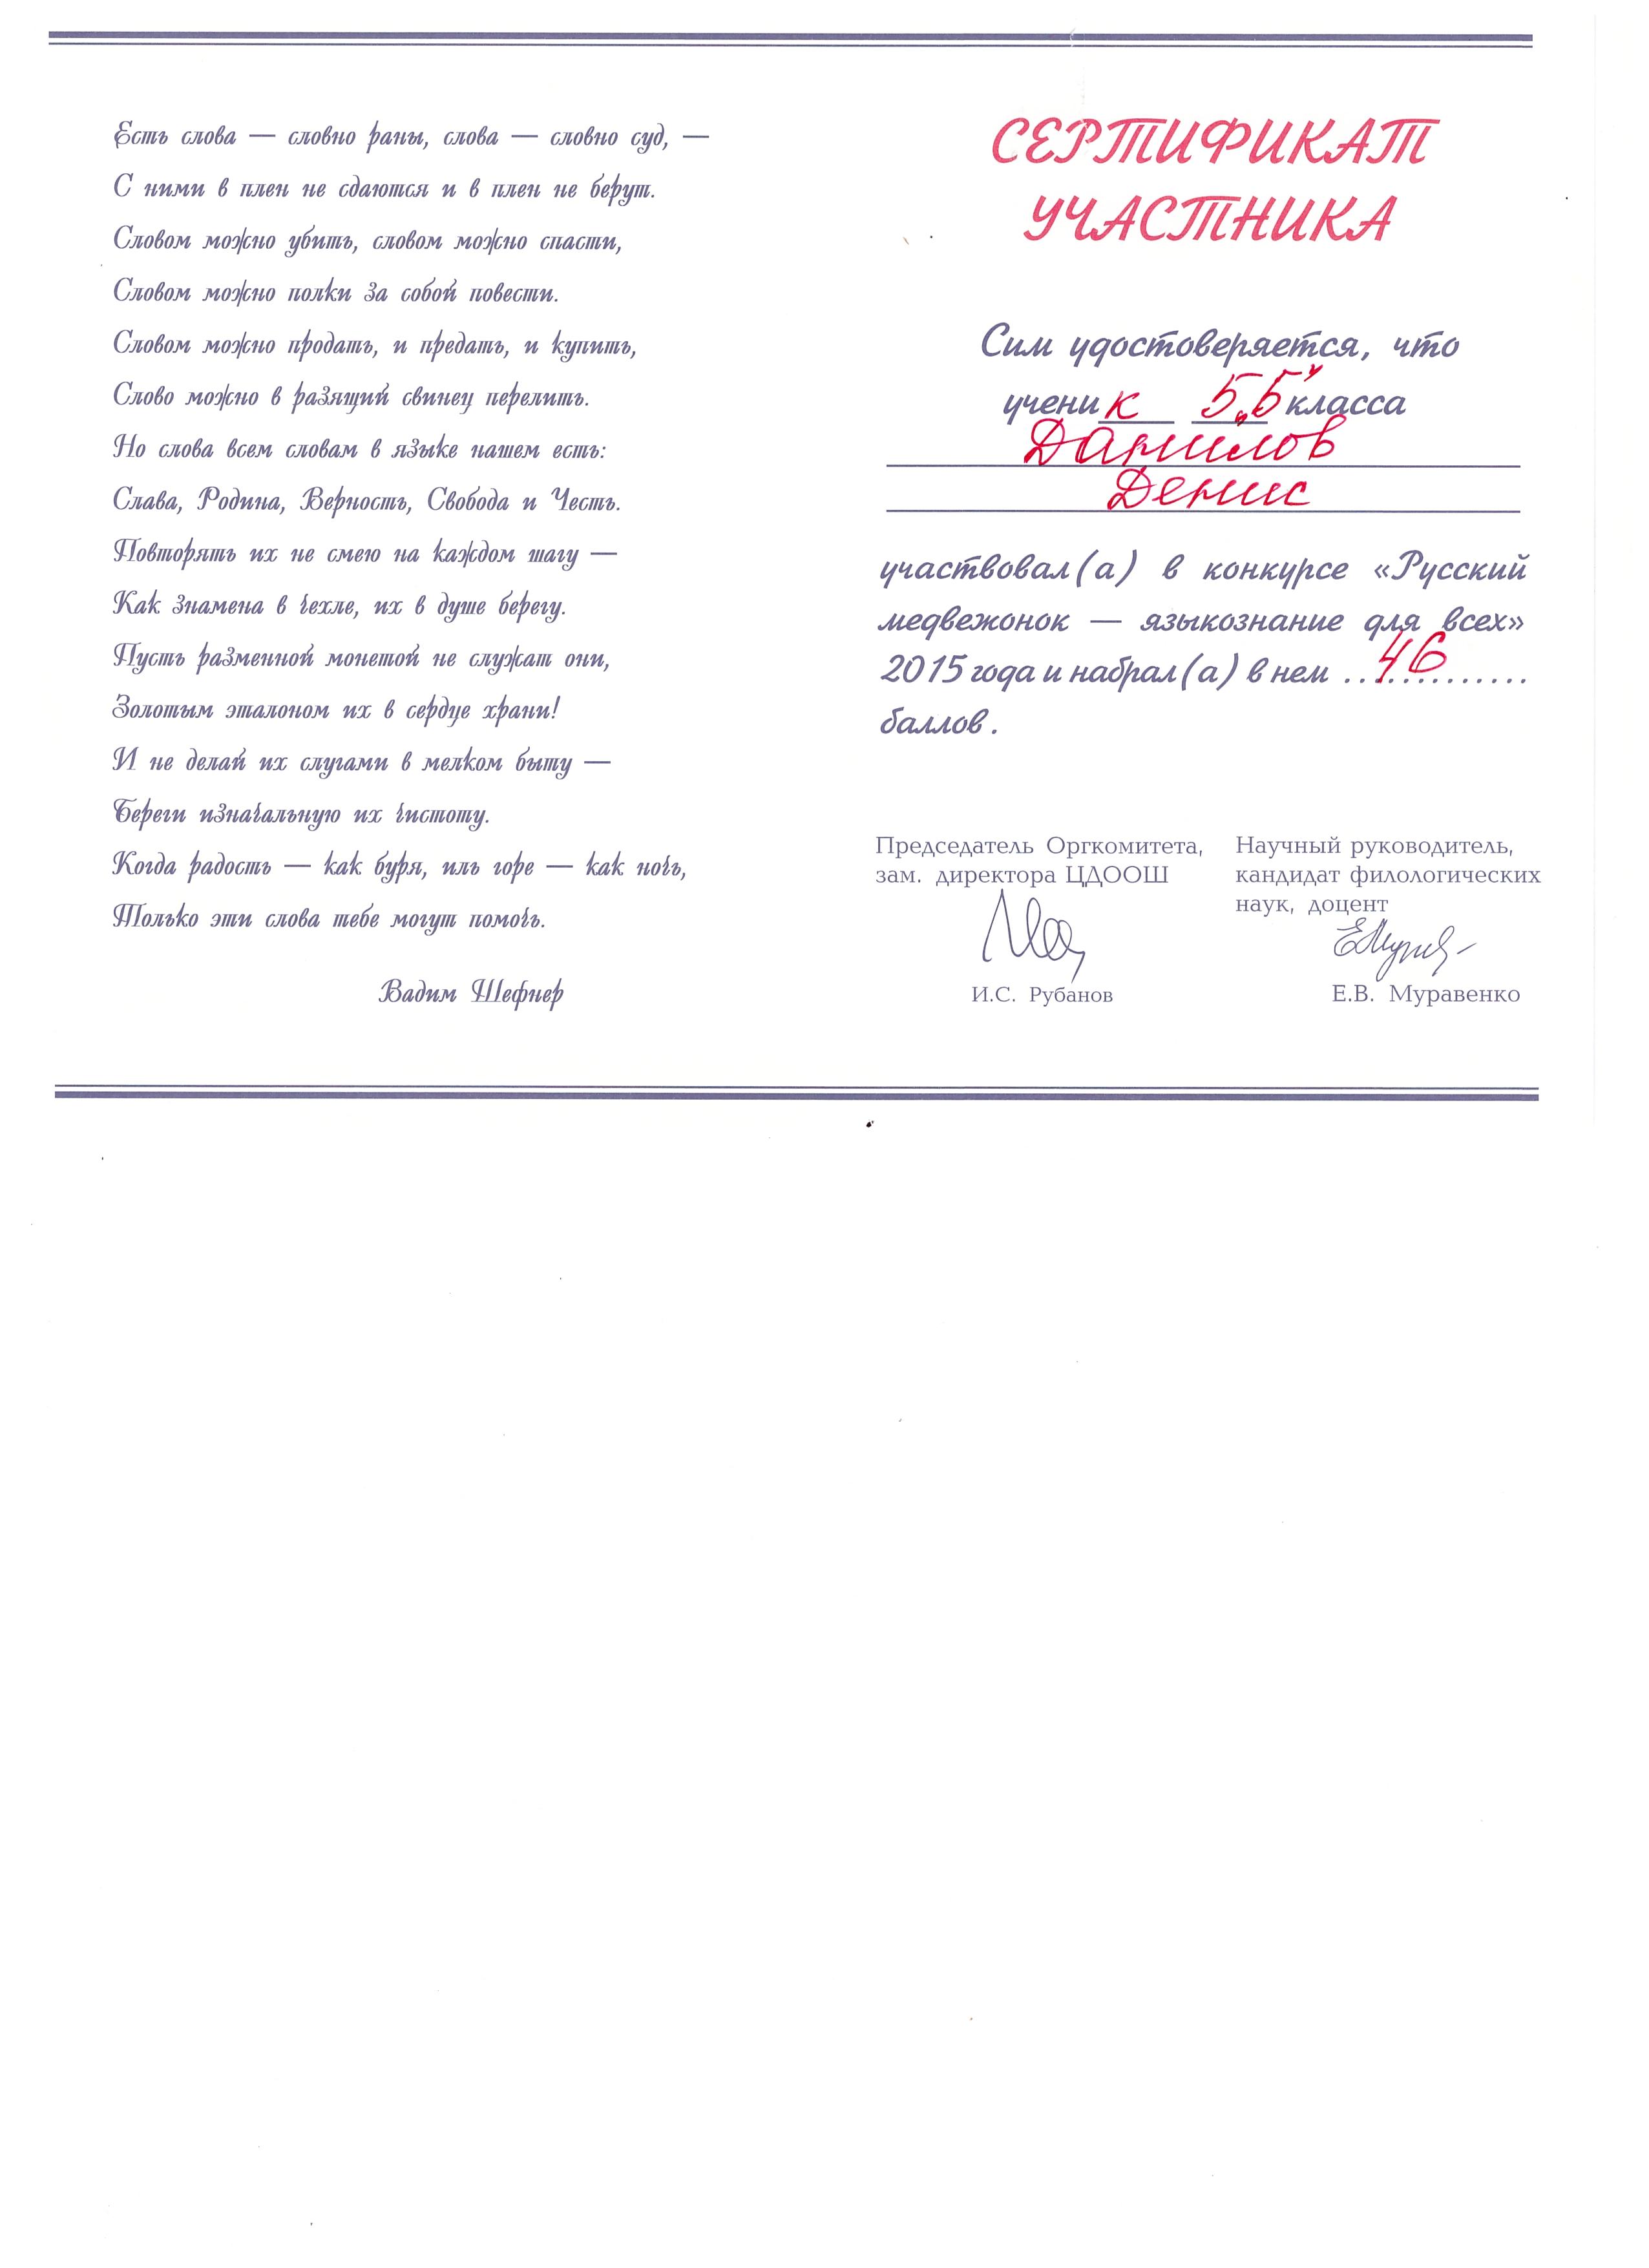 Есть слова — словно раны, слова — словно суд, —
С ними в плен не сдаются и в плен не берут.
Словом можно убить, словом можно спасти,
Словом можно полки за собой повести.
Словом можно продать, и предать, и купить,
Слово можно в разящий свинец перелить.
Но слова всем словам в языке нашем есть:
Слава, Родина, Верность, Свобода и Честь.
Повторять их не смею на каждом шагу —
Как знамена в чехле, их в душе берегу.
Пусть разменной монетой не служат они,
Золотым эталоном их в сердце храни!
И не делай их слугами в мелком быту —
Береги изначальную их чистоту.
Когда радость — как буря, иль горе — как ночь,
Только эти слова тебе могут помочь.
Вадим Шефнер
СЕРТИФИКАТ
УЧАСТНИКА
Сим удостоверяется, что
ученик 5 „Б" класса
Данилов
Денис
участвовал(а) в конкурсе «Русский
медвежонок — языкознание для всех»
2015 года и набрал(а) в нем 46
баллов.
Председатель Оргкомитета,
зам. директора ЦДООШ
И.С. Рубанов
Научный руководитель,
кандидат филологических
наук, доцент
Е.В. Муравенко